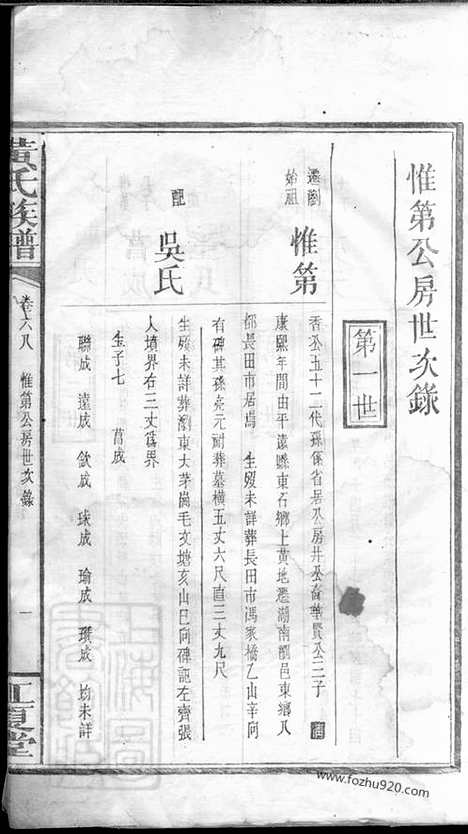 惟第公房世次錄
第一世
遷瀏始祖 惟第
香公五十二代孫係省居公房井公裔華賢公三子 清
康熙年間由平遠縣東石鄉上黃地遷湖南瀏邑東鄉八
都長田市居焉 生歿未詳葬長田市馮家橋乙山辛向
有碑其孫堯元祔葬墓橫五丈六尺直三丈九尺
配 吳氏
生歿未詳葬瀏東大茅崗毛坟塘亥山巳向碑記左齊張
人墳界右三丈爲界
生子七 菖成
聯成 遠成 欽成 球成 瑜成 瓚成 均未詳
黃氏族譜
卷六八 惟第公房世次錄
一
江夏堂
www.fozhu920.com